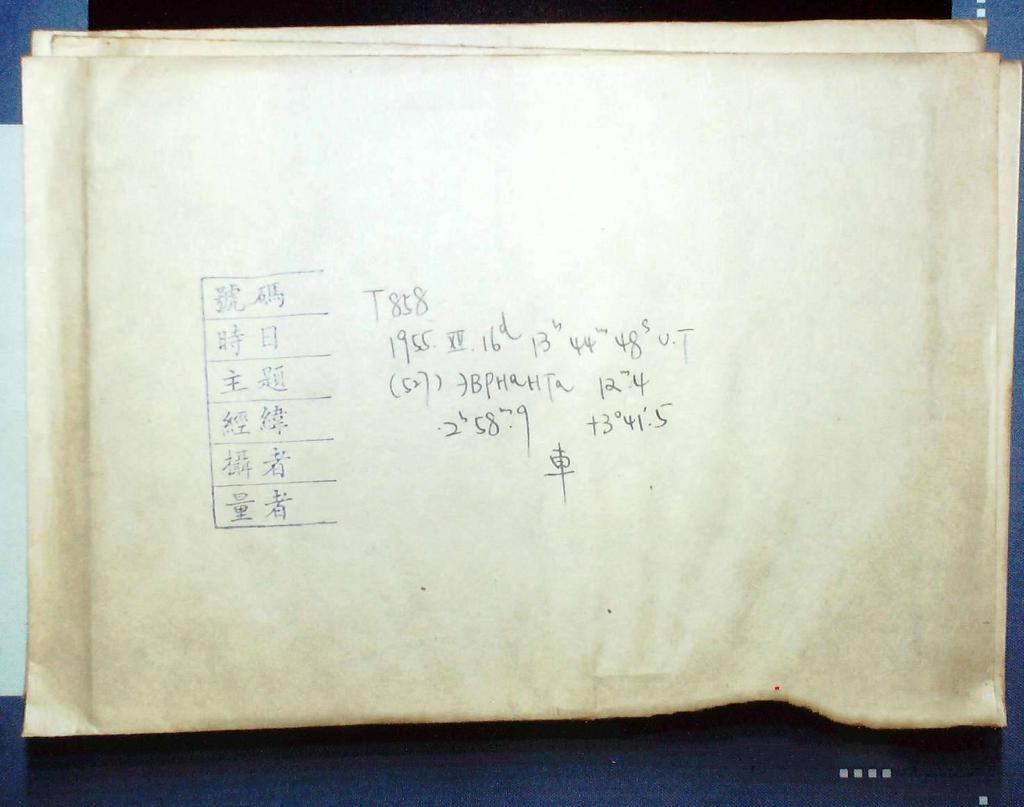 號碼 T858
時日 1955. XII. 16ᵈ 13ʰ 44ᵐ 48ˢ U.T
主題 (527) ЭВРНаНТа 12ᵐ.4
經緯 2ʰ58ᵐ.9 +3°41'.5
攝者 車
量者